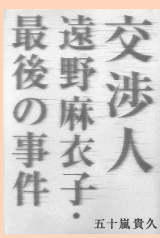 交渉人
遠野麻衣子・
最後の事件
五十嵐貴久